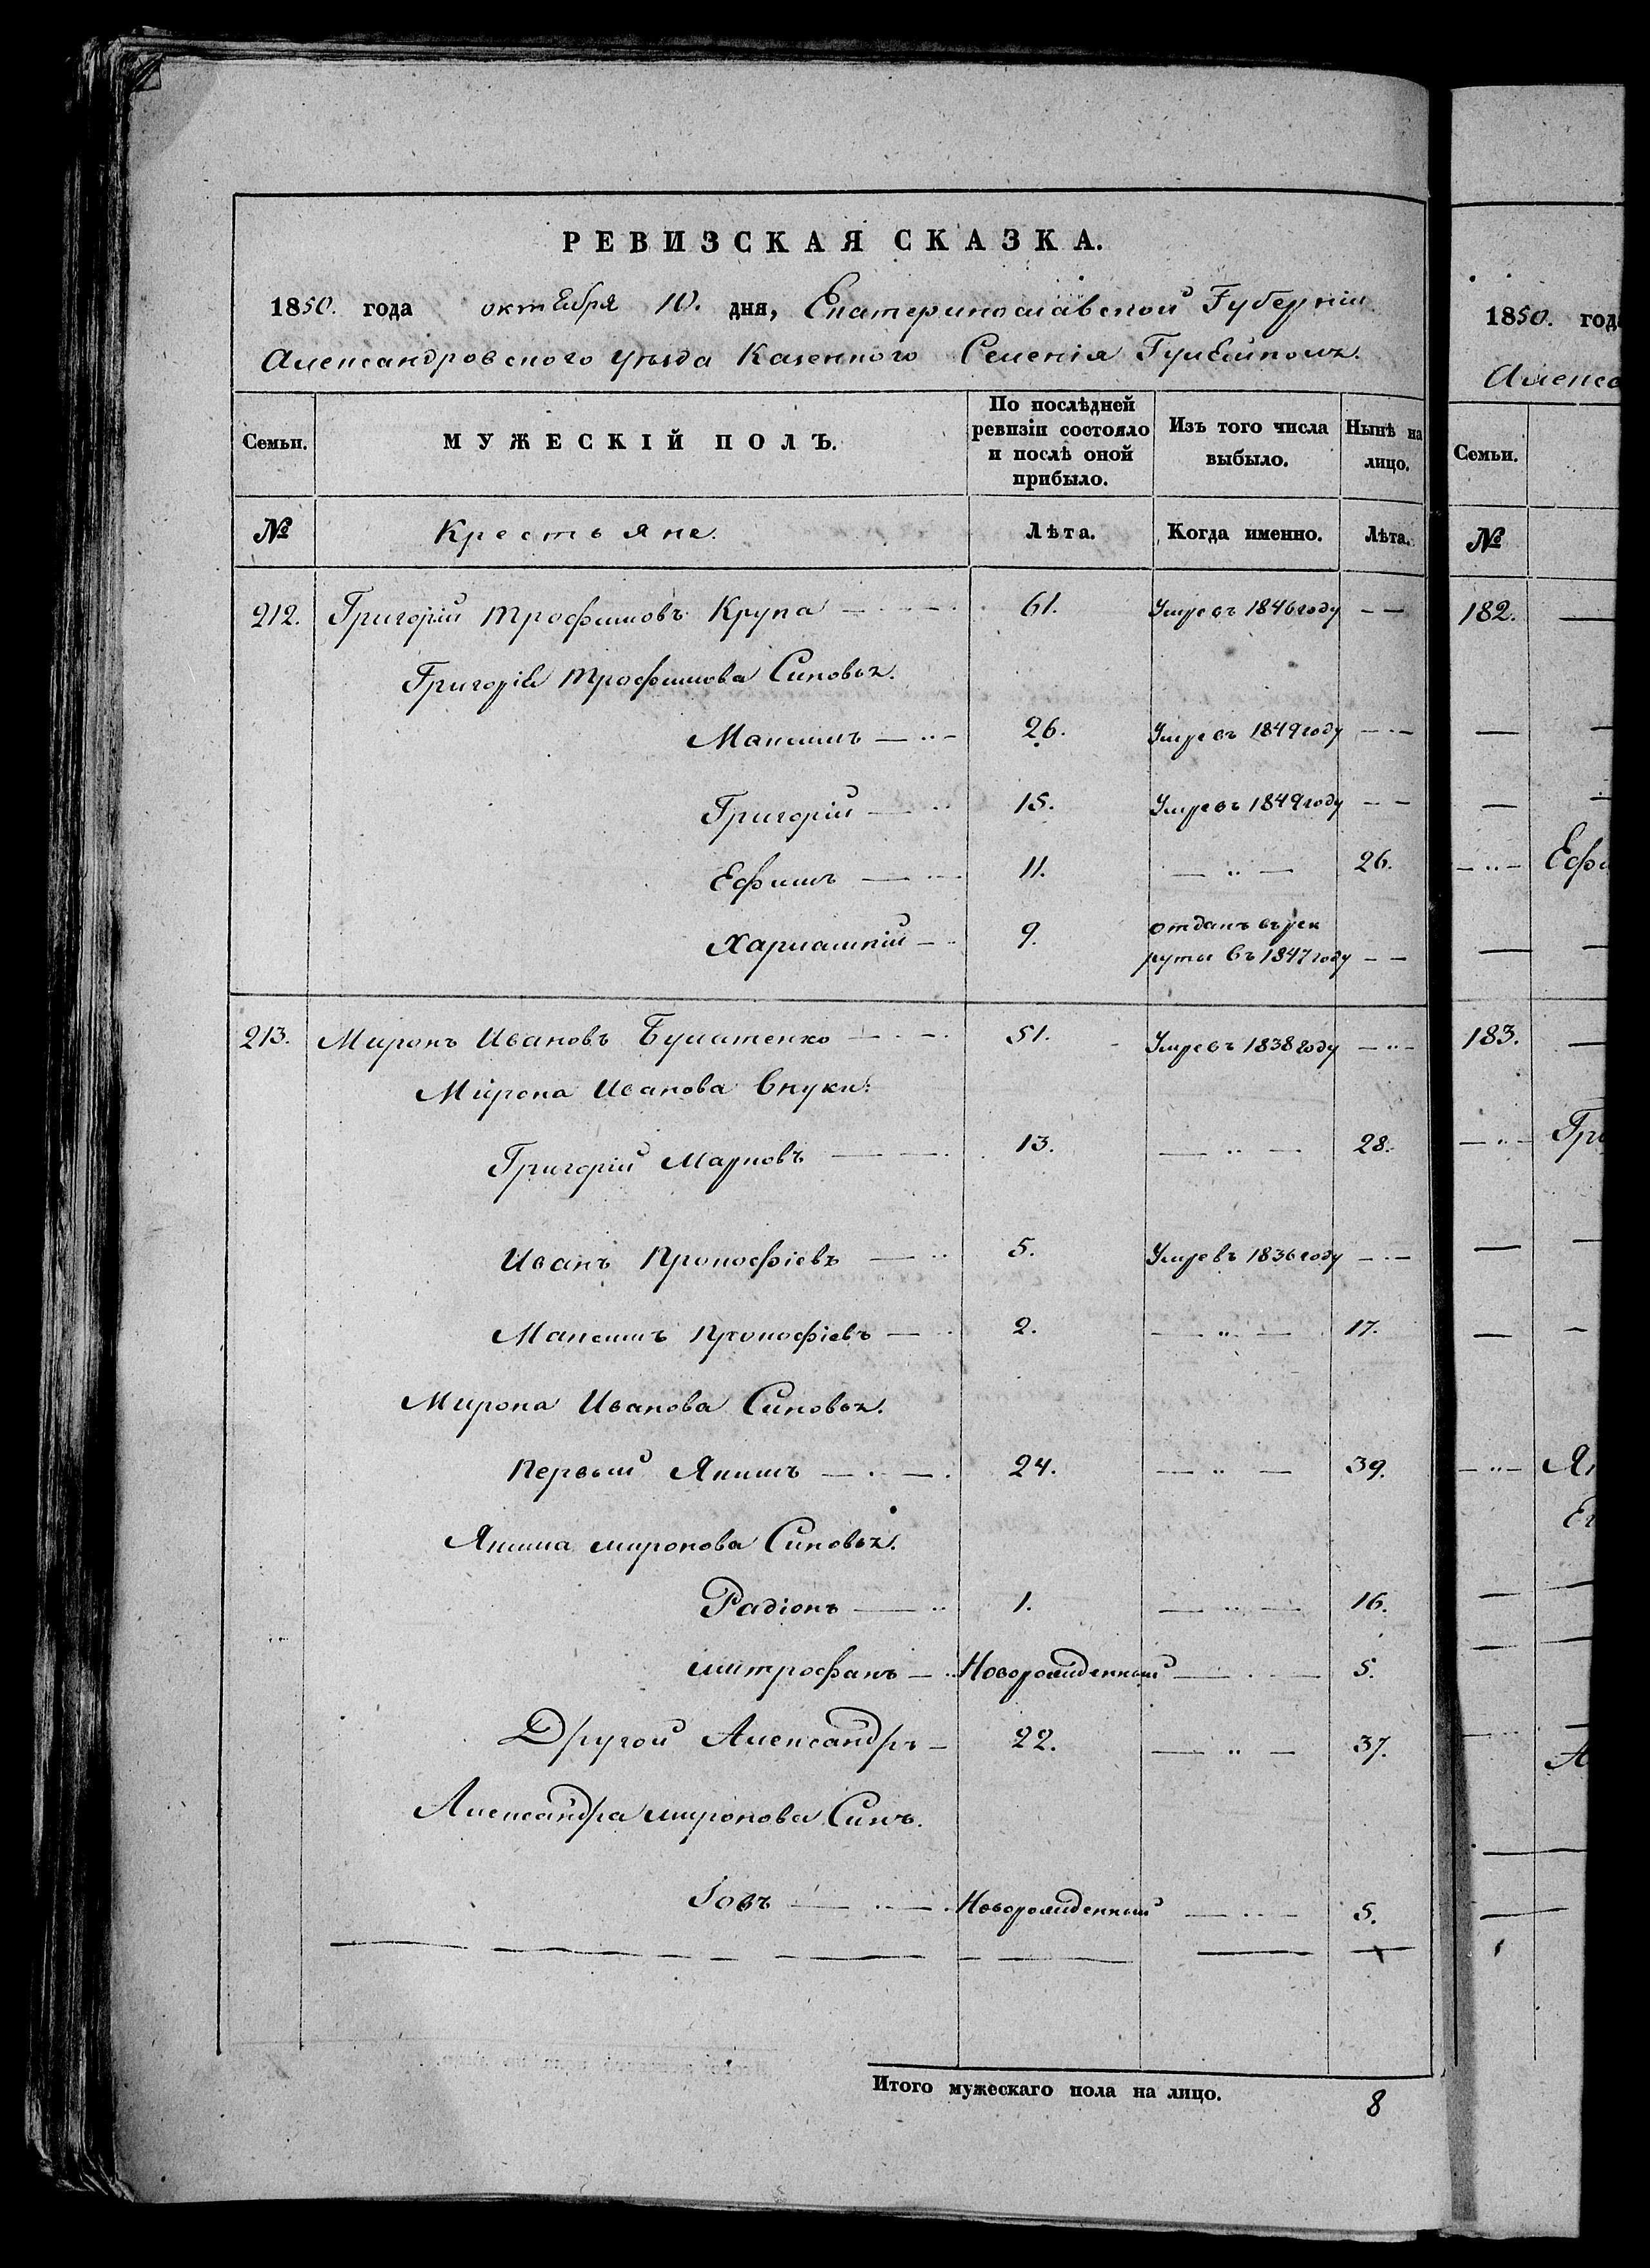 РЕВИЗСКАЯ СКАЗКА.
1850. года октября 10. дня, Екатеринославской Губерніи
Александровского уѣзда Казенного Селенія Гуляйполѣ.
Семьи. МУЖЕСКІЙ ПОЛЪ. По послѣдней ревизіи состояло и послѣ оной прибыло. Изъ того числа выбыло. Нынѣ на лицо.
№ Крестьяне. Лѣта. Когда именно. Лѣта.
212. Григорій Трофимовъ Крупа 61. Умре въ 1846 году
Григорія Трофимова Сыновья.
Максимъ 26. Умре въ 1849 году
Григорій 15. Умре въ 1849 году
Ефимъ 11. 26.
Харлампій 9. отданъ въ рек
руты въ 1847 году
213. Миронъ Ивановъ Булатенко 51. Умре въ 1838 году
Мирона Иванова Внуки:
Григорій Марковъ 13. 28.
Иванъ Прокофіевъ 5. Умре въ 1836 году
Максимъ Прокофіевъ 2. 17.
Мирона Иванова Сыновья.
Первый Якимъ 24. 39.
Якима миронова Сыновья.
Радіонъ 1. 16.
митрофанъ Новорожденный 5.
Другой Александръ 22. 37.
Александра миронова Сынъ.
Іовъ Новорожденный 5.
Итого мужескаго пола на лицо. 8
1850. год
Алекса
Семьи.
№
182.
Ефи
183.
Гри
Як